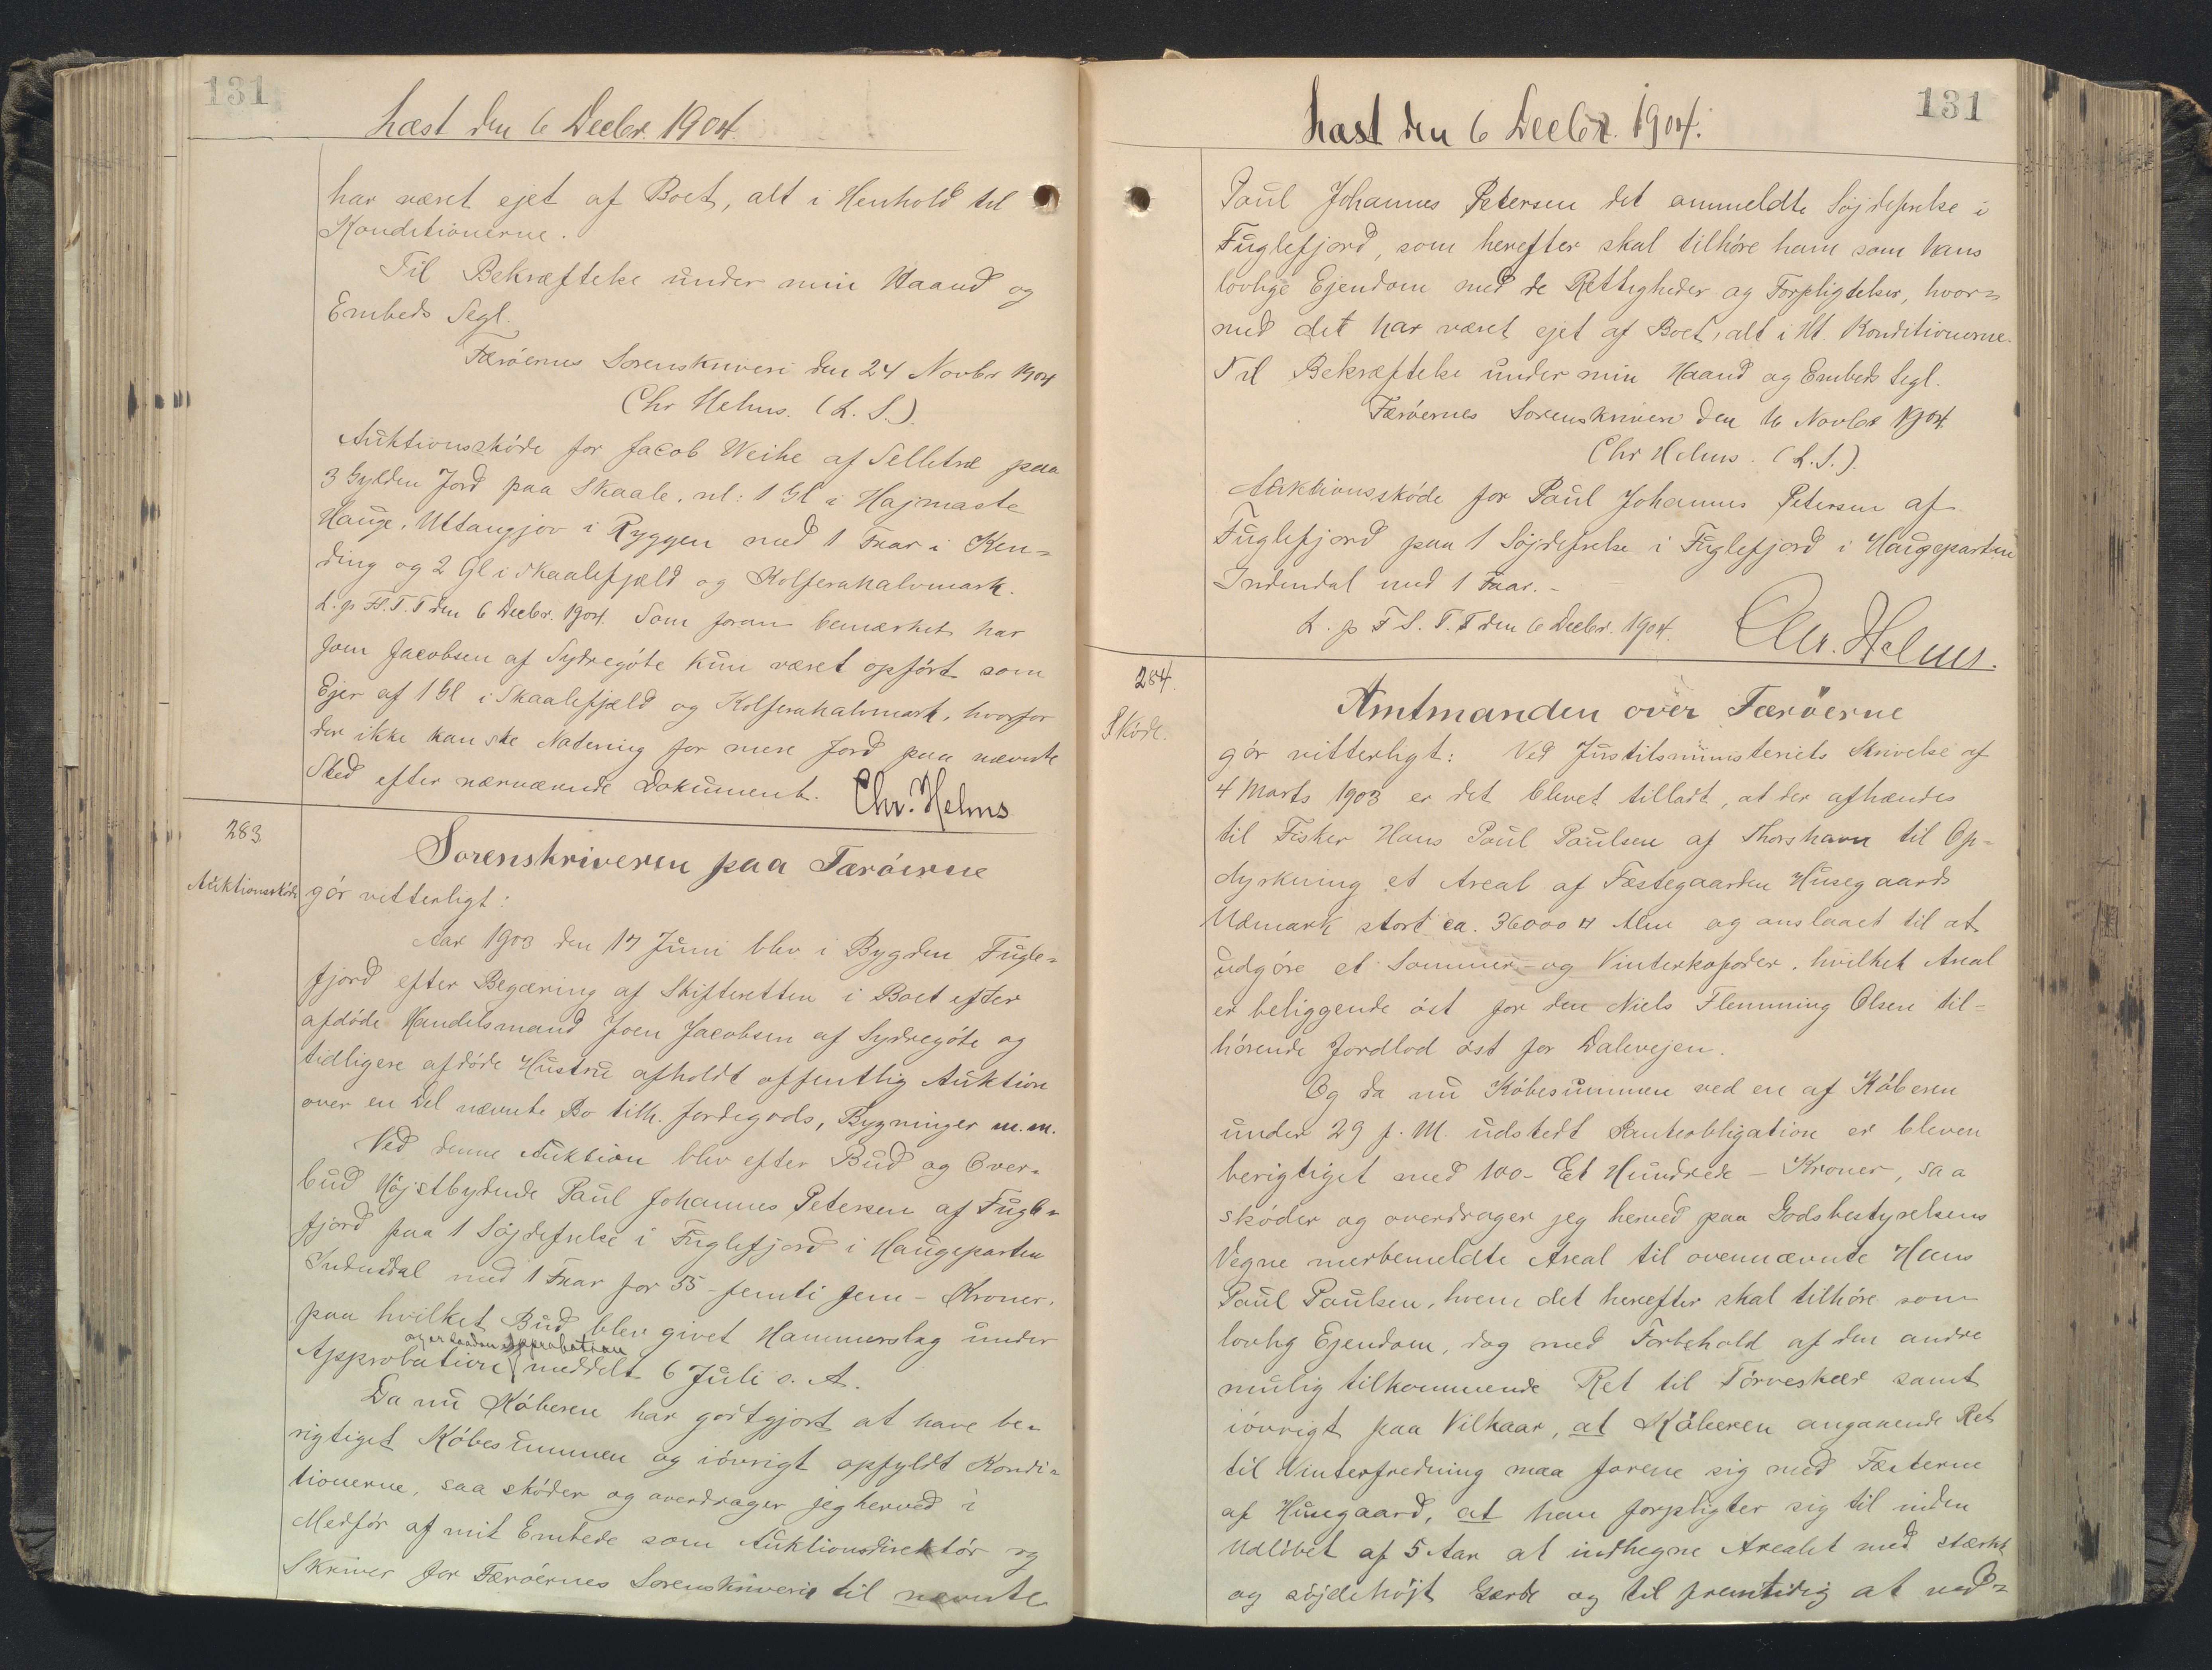 131
Læst den 6 Decbr. 1904.
har været ejet af Boet, alt i Henhold til
Konditionerne.
Til Bekræftelse under min Haand og
Embeds Segl.
Færöernes Sorenskriveri den 24 Novbr 1904
Chr Helms. (L. S.).
Auktionsskóde for Jacob Weihe af Selletræ paa
3 Gylden Jord paa Skaale, nl: 1 Gl i Hajmaste
Hauge, Uttangjov i Ryggen med 1 Faar i Ken=
ding og 2 Gl i Skaalefjæld og Kolferuhalvmark.
L. p F.S.T.T den 6 Decbr. 1904. Som foran bemærket har
Joen Jacobsen af Sydregóte kun været opfórt som
Ejer af 1 Gl i Skaalefjæld og Kolferuhalvmark, hvorfor
der ikke kan ske Notering for mere Jord paa nævnte
Sted efter nærværende Dokument. Chr. Helms
283
Sorenskriveren paa Færóerne
Auktionsskóde
gór vitterligt:
Aar 1903 den 17 Juni blev i Bygden Fugle=
fjord efter Begæring af Skifteretten i Boet efter
afdóde Handelsmand Joen Jacobsen af Sydregóte og
tidligere afdóde Hustru afholdt offentlig Auktion
over en Del nævnte Bo tilh. Jordegods, Bygninger m.m.
Ved denne Auktion blev efter Bud og Over=
bud Højstbydende Paul Johannes Petersen af Fugle=
fjord paa 1 Søjdefrelse i Fuglefjord i Haugeparten
Indendal med 1 Faar for 55 - femti fem - Kroner,
paa hvilket Bud blev givet Hammerslag under
Approbation og er saadan Approbation meddelt 6 Juli s. A.
Da nu Kóberen har godtgjort at have be=
rigtiget Kóbesummen og ióvrigt opfyldt Kondi=
tionerne, saa skóder og overdrager jeg herved i
Medfór af mit Embede som Auktionsdirektór og
Skriver for Færóernes Sorenskriveri til nævnte
131
Læst den 6 Decbr. 1904.
Paul Johannes Petersen det ommeldte Søjdefrelse i
Fuglefjord, som herefter skal tilhóre ham som hans
lovlige Ejendom med de Rettigheder og Forpligtelser, hvor=
med det har været ejet af Boet, alt i Ht. Konditionerne.
Til Bekræftelse under min Haand og Embeds Segl.
Færóernes Sorenskriveri den 16 Novbr 1904
Chr Helms. (L.S.).
Auktionsskóde for Paul Johannes Petersen af
Fuglefjord paa 1 Søjdefrelse i Fuglefjord i Haugeparten
Indendal med 1 Faar. -
L. p F S. T. T den 6 Decbr. 1904. Chr. Helms.
284.
Amtmanden over Færöerne
Skóde.
gór vitterligt: Ved Justitsministeriets Skrivelse af
4 Marts 1903 er det blevet tilladt, at der afhændes
til Fisker Hans Paul Paulsen af Thorshavn til Op=
dyrkning et Areal af Fæstegaarden Husegaards
Udmark stort ca. 36000 □ Alen og anslaaet til at
udgóre et Sommer- og Vinterkofoder, hvilket Areal
er beliggende óst for den Niels Flemming Olsen til=
hórende Jordlod óst for Dalevejen.
Og da nu Kóbesummen ved en af Kóberen
under 29 f. M. udstedt Panteobligation er bleven
berigtiget med 100 - Et Hundrede - Kroner, saa
skóder og overdrager jeg herved paa Godsbestyrelsens
Vegne merbemeldte Areal til ovennævnte Hans
Paul Paulsen, hvem det herefter skal tilhóre som
lovlig Ejendom, dog med Forbehold af den andre
mulig tilkommende Ret til Tórveskær samt
ióvrigt paa Vilkaar, at Kóberen angaaende Ret
til Vinterfredning maa forene sig med Fæsterne
af Husegaard, at han forpligter sig til inden
Udlóbet af 5 Aar at indhegne Arealet med stærkt
og sójdehójt Gærde og til fremtidig at ved=